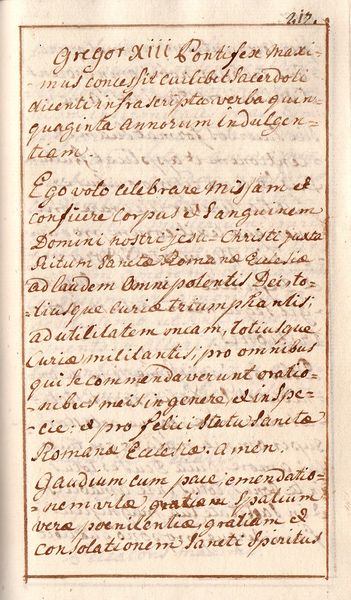 212.
Gregor XIII Pontifex Maxi-
mus concessit cuilibet Sacerdoti
dicenti infrascripta verba quin-
quaginta Annorum indulgen-
tiam.
Ego volo celebrare Missam et
conficere Corpus et Sanguinem
Domini nostri Jesu Christi juxta
Ritum Sanctæ Romanæ Eclesiæ
ad laudem Omnipotentis Dei, to-
tiusque Curiæ triumphantis,
ad utilitatem meam, totiusque
Curiæ militantis, pro omnibus
qui se commendaverunt oratio-
nibus meis in genere, et in Spe-
cie: et pro felici Statu Sanctæ
Romanæ Eclesiæ. Amen.
Gaudium cum pace, emendatio-
nem vitæ gratiam Spatium
veræ poenitentiæ, gratiam et
consolationem Sancti Spiritus